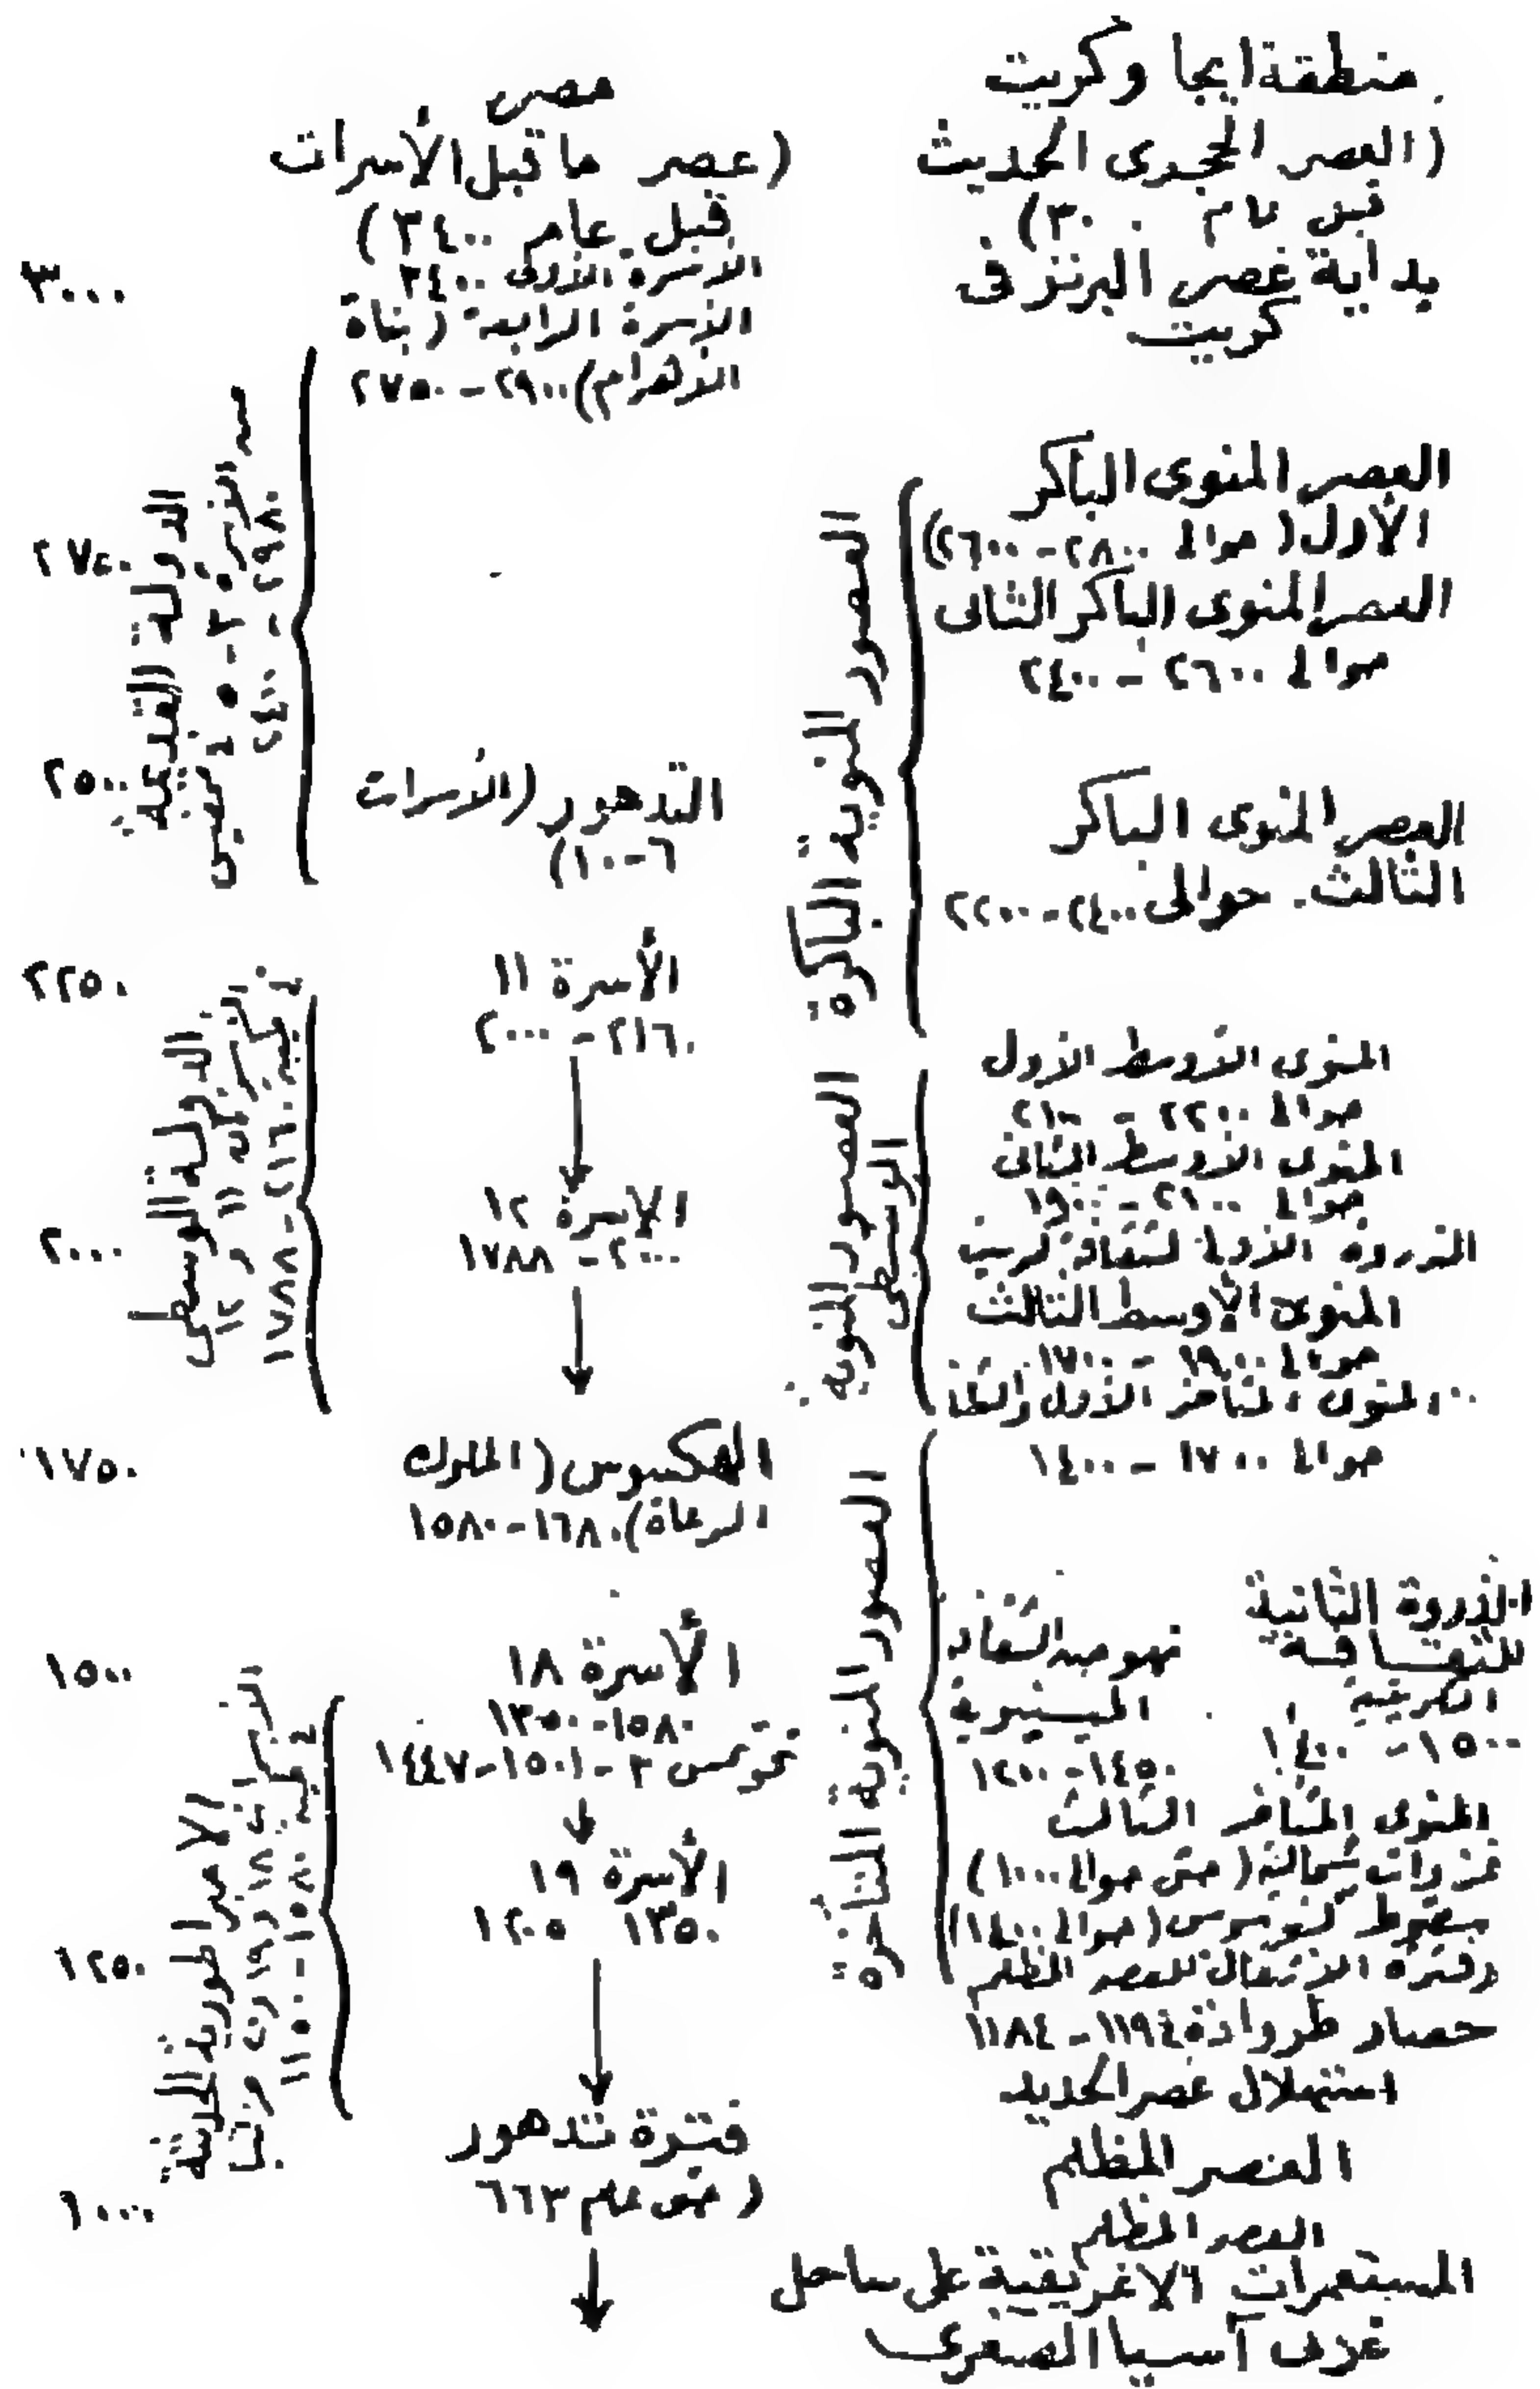 منطقة ايجا وكريت
(العصر الحجرى الحديث
قبل عام ٣٠٠٠)
بداية عصر البرنز فى
كريت
العصور المنوية الباكرة
العصر المنوى الباكر
الأول (حوالى ٢٨٠٠-٢٦٠٠)
العصر المنوى الباكر الثانى
حوالى ٢٦٠٠ - ٢٤٠٠
العصر المنوى الباكر
الثالث. حوالى ٢٤٠٠-٢٢٠٠
العصور المنوية
الوسطى
المنوى الأوسط الأول
حوالى ٢٢٠٠ - ٢١٠٠
المنوى الأوسط الثانى
حوالى ٢١٠٠ - ١٩٠٠
الذروة الأولى لثقافة كريت
المنوى الأوسط الثالث
حوالى ١٩٠٠ - ١٧٠٠
المنوى المتأخر الأول والثانى
حوالى ١٧٠٠ - ١٤٠٠
العصور المنوية المتأخرة
الذروة الثانية
للثقافة
الكريتية
١٥٠٠ - ١٤٠٠
نهوض الثقافة
الميسينية
١٤٥٠-١٢٠٠
المنوى المتأخر الثالث
غزوات شمالية (حتى حوالى ١٠٠٠)
سقوط كنوسوس (حوالى ١٤٠٠)
وفترة الانتقال للعصر المظلم
حصار طروادة ١١٩٤-١١٨٤
استهلال عصر الحديد
العصر المظلم
العصر المظلم
المستعمرات الاغريقية على ساحل
غربى آسيا الصغرى
مصر
(عصر ما قبل الأسرات
قبل عام ٣٤٠٠)
الأسرة الأولى ٣٤٠٠
الأسرة الرابعة (بناة
الأهرام) ٢٩٠٠-٢٧٥٠
التدهور (الأسرات
٦-١٠)
الأسرة ١١
٢١٦٠ - ٢٠٠٠
الأسرة ١٢
٢٠٠٠ - ١٧٨٨
الهكسوس (الملوك
الرعاة) ١٦٨٠-١٥٨٠
الأسرة ١٨
١٥٨٠-١٣٥٠
تحوتمس ٣ - ١٥٠١-١٤٤٧
الأسرة ١٩
١٣٥٠ ١٢٠٥
فترة تدهور
(حتى عام ٦٦٣
الدولة القديمة
من الأسرة ٣-٥ فى ممفيس
٢٩٨٠ - ٢٤٠٠
الدولة الوسطى
الأسرتان ١١ و ١٢
فى طيبة ٢١٦٠ - ١٧٨٨
الامبراطورية الحديثة
الأسرات ١٨ و ١٩ و ٢٠
فى طيبة ١٥٨٠ - ١١٥٠
٣٠٠٠
٢٧٥٠
٢٥٠٠
٢٢٥٠
٢٠٠٠
١٧٥٠
١٥٠٠
١٢٥٠
١٠٠٠